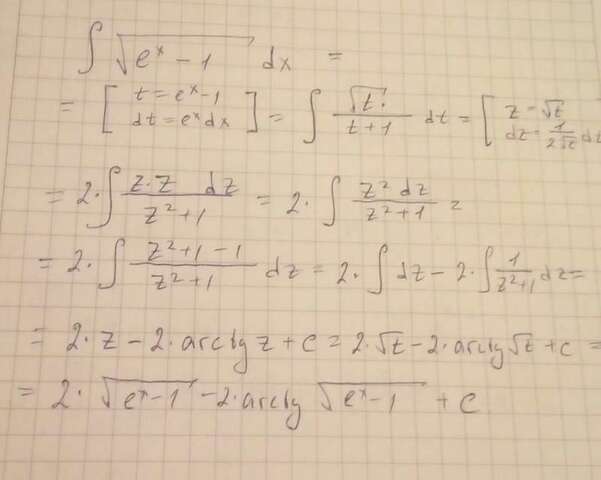 ∫ √(e^x − 1) dx =
= [ t = e^x − 1 dt = e^x dx ] = ∫ √t / (t + 1) dt = [ z = √t dz = 1/(2√t) dt
= 2 · ∫ (z · z dz) / (z² + 1) = 2 · ∫ (z² dz) / (z² + 1) =
= 2 · ∫ (z² + 1 − 1) / (z² + 1) dz = 2 · ∫ dz − 2 · ∫ 1/(z² + 1) dz =
= 2 · z − 2 · arctg z + c = 2 · √t − 2 · arctg √t + c =
= 2 · √(e^x − 1) − 2 · arctg √(e^x − 1) + c